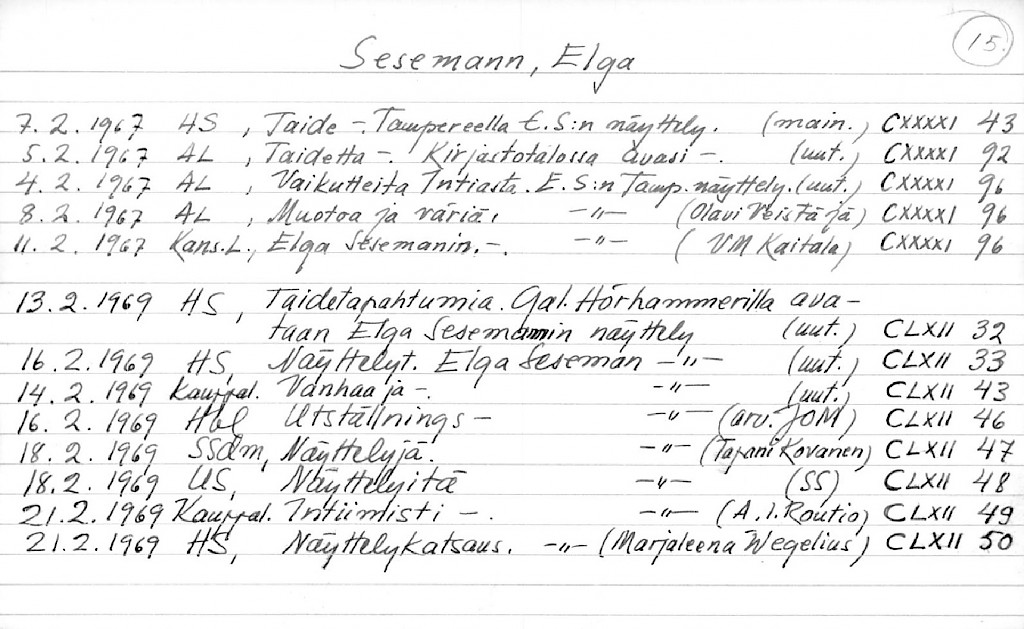 15.
Sesemann, Elga
7.2.1967 HS , Taide -. Tampereella E.S:n näyttely. (main.) CXXXXI 43
5.2.1967 AL , Taidetta -. Kirjastotalossa avasi -. (uut.) CXXXXI 92
4.2.1967 AL , Vaikutteita Intiasta. E.S:n Tamp. näyttely. (uut.) CXXXXI 96
8.2.1967 AL , Muotoa ja väriä, -"- (Olavi Veistäjä) CXXXXI 96
11.2.1967 Kans.L., Elga Sesemanin. -. -"- (VM Kaitala) CXXXXI 96
13.2.1969 HS , Taidetapahtumia. Gal. Hörhammerilla ava-
taan Elga Sesemannin näyttely (uut.) CLXII 32
16.2.1969 HS, Näyttelyt. Elga Seseman -"- (uut.) CLXII 33
14.2.1969 Kauppal. Vanhaa ja -. -"- (uut.) CLXII 43
16.2.1969 Hbl Utställnings - -"- (arv. JOM) CLXII 46
18.2.1969 SSdm, Näyttelyjä. -"- (Tapani Kovanen) CLXII 47
18.2.1969 US, Näyttelyitä -"- (SS) CLXII 48
21.2.1969 Kauppal. Intiimisti -. -"- (A.I. Routio) CLXII 49
21.2.1969 HS, Näyttelykatsaus. -"- (Marjaleena Wegelius) CLXII 50